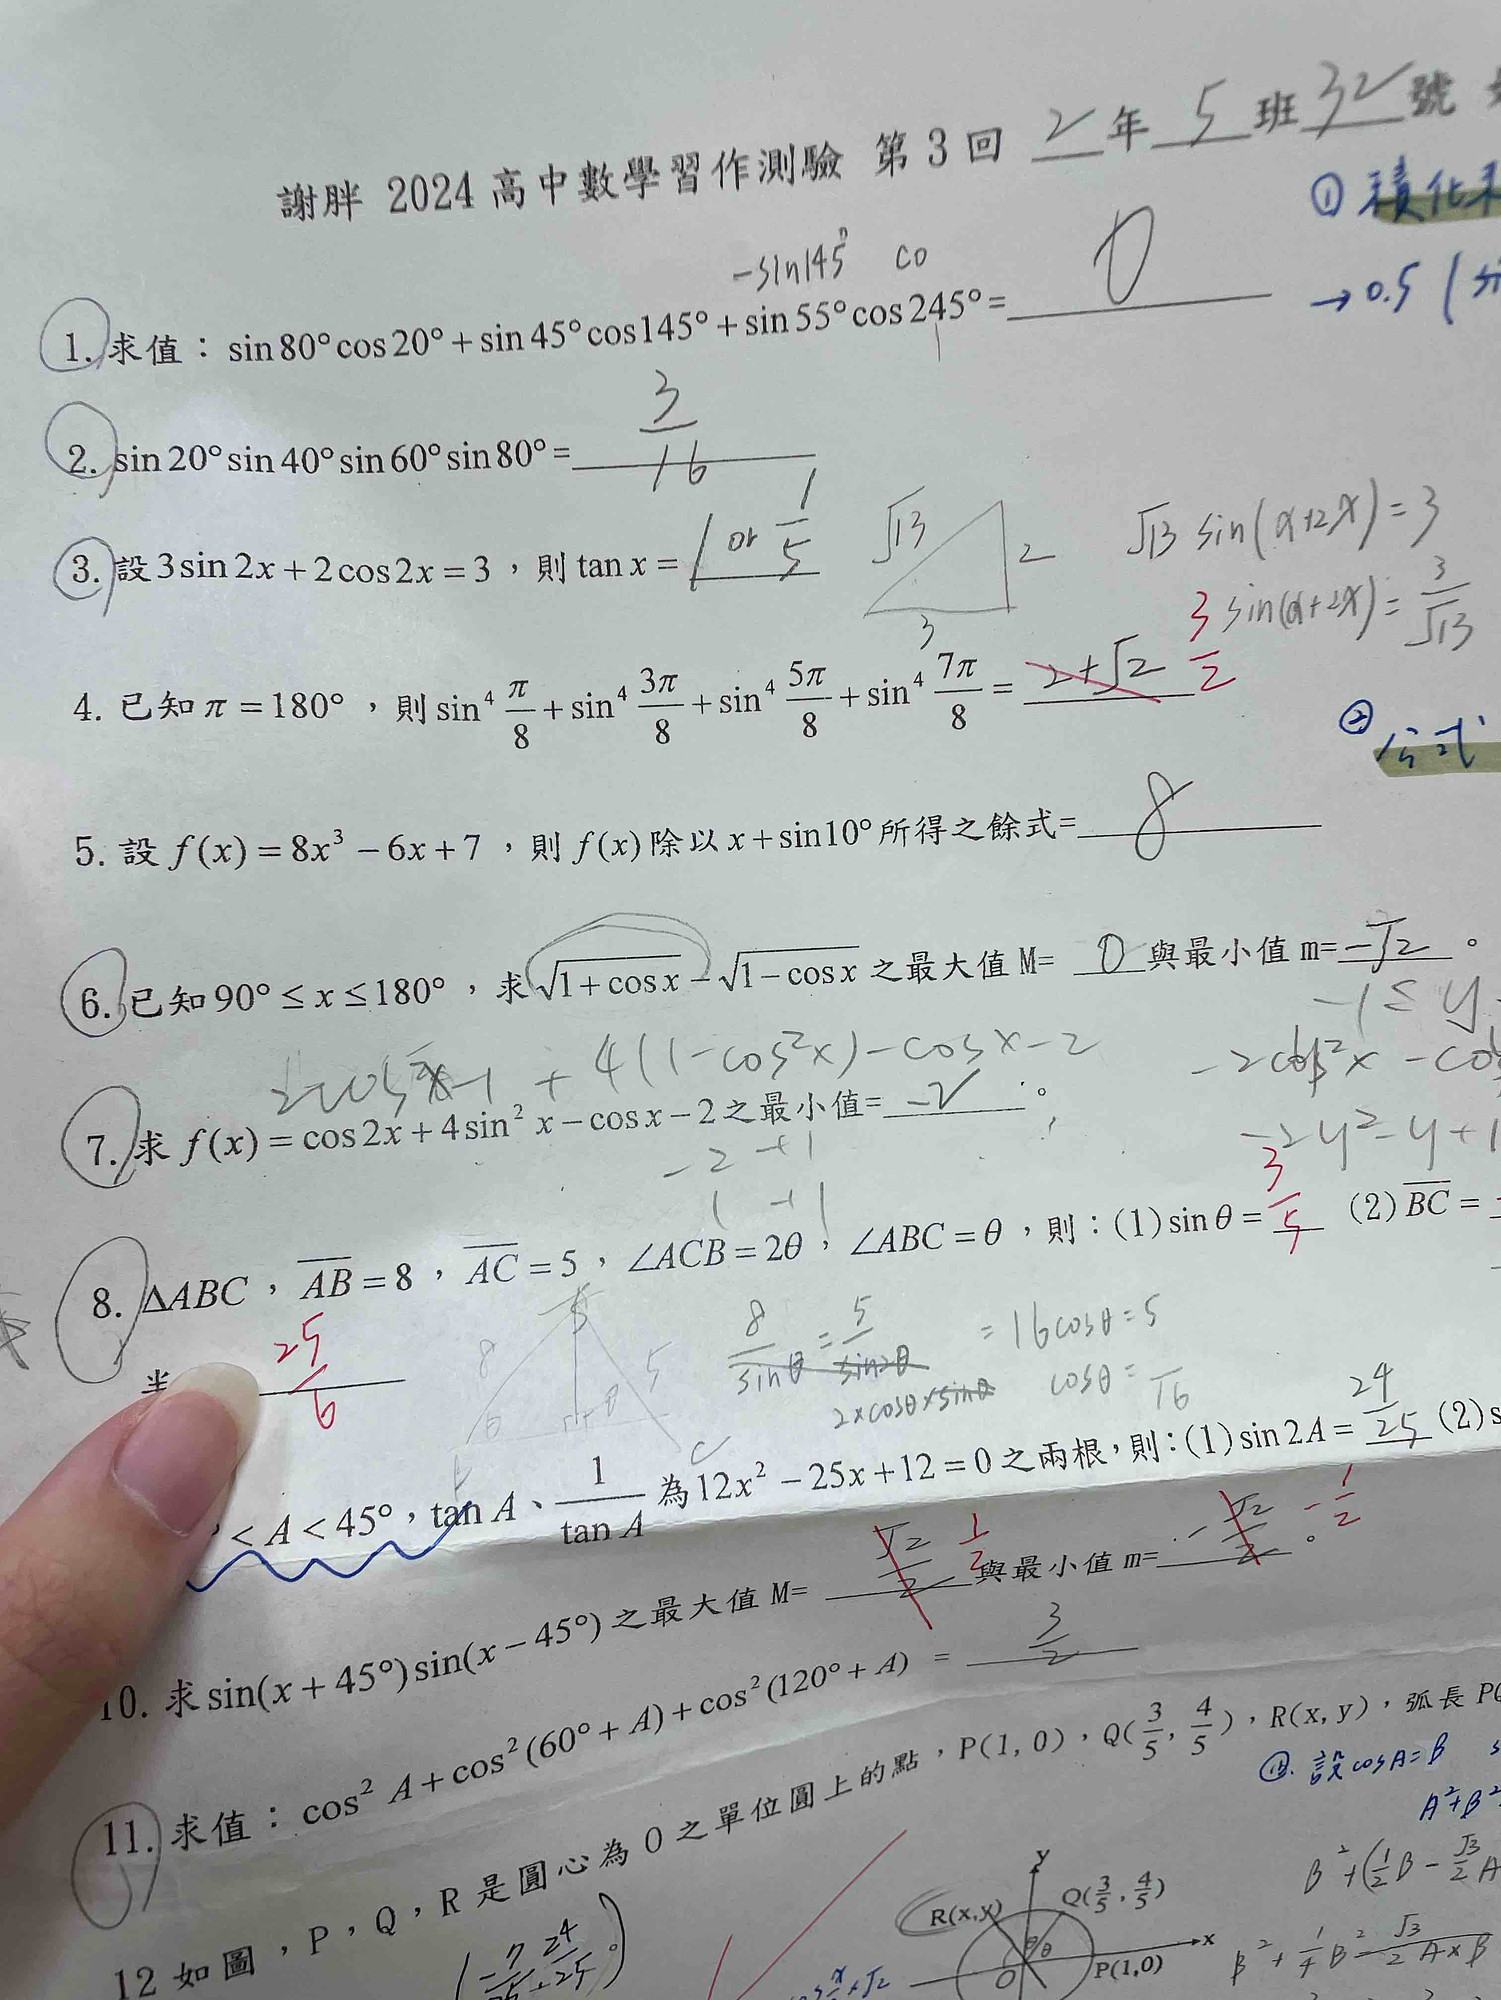 謝胖 2024 高中數學習作測驗 第 3 回 2 年 5 班 32 號
① 積化
-sin145° co
1. 求值：sin80°cos20°+sin45°cos145°+sin55°cos245°= 0
→0.5 (
2. sin20°sin40°sin60°sin80°= 3/16
3. 設 3sin2x+2cos2x=3，則 tan x = 1 or 1/5
√13 2 3
√13 sin(α+2x)=3
sin(α+2x)= 3/√13
4. 已知 π=180°，則 sin⁴ π/8 + sin⁴ 3π/8 + sin⁴ 5π/8 + sin⁴ 7π/8 = 2+√2 3/2
② 公式
5. 設 f(x)=8x³-6x+7，則 f(x) 除以 x+sin10° 所得之餘式= 8
6. 已知 90°≤x≤180°，求 √(1+cos x) - √(1-cos x) 之最大值 M= 0 與最小值 m= -√2 。
-1≤y
2cos²x-1 + 4(1-cos²x)-cosx-2
-2cos²x -co
7. 求 f(x)=cos2x+4sin² x-cosx-2 之最小值= -2 。
-2y²-y+1
-2 +1
1 -1
8. ΔABC，AB=8，AC=5，∠ACB=2θ，∠ABC=θ，則：(1) sinθ= 3/5 (2) BC=
25/6
8 5
8/sinθ = 5/sin2θ
2×cosθ×sinθ
=16cosθ=5
cosθ= /16
<A<45°，tan A、1/tan A 為 12x²-25x+12=0 之兩根，則：(1) sin2A= 24/25 (2) s
10. 求 sin(x+45°)sin(x-45°) 之最大值 M= √2/2 1/2 與最小值 m= -√2/2 -1/2 。
11. 求值：cos² A+cos²(60°+A)+cos²(120°+A) = 3/2
12 如圖，P，Q，R 是圓心為 O 之單位圓上的點，P(1,0)，Q(3/5, 4/5)，R(x,y)，弧長 PQ
⑪. 設 cosA=B
A²+B²
B²+(1/2 B - √3/2 A
B²+1/4 B² - √3/2 A×B
y
R(x,y)
Q(3/5, 4/5)
θ θ
O
P(1,0)
x